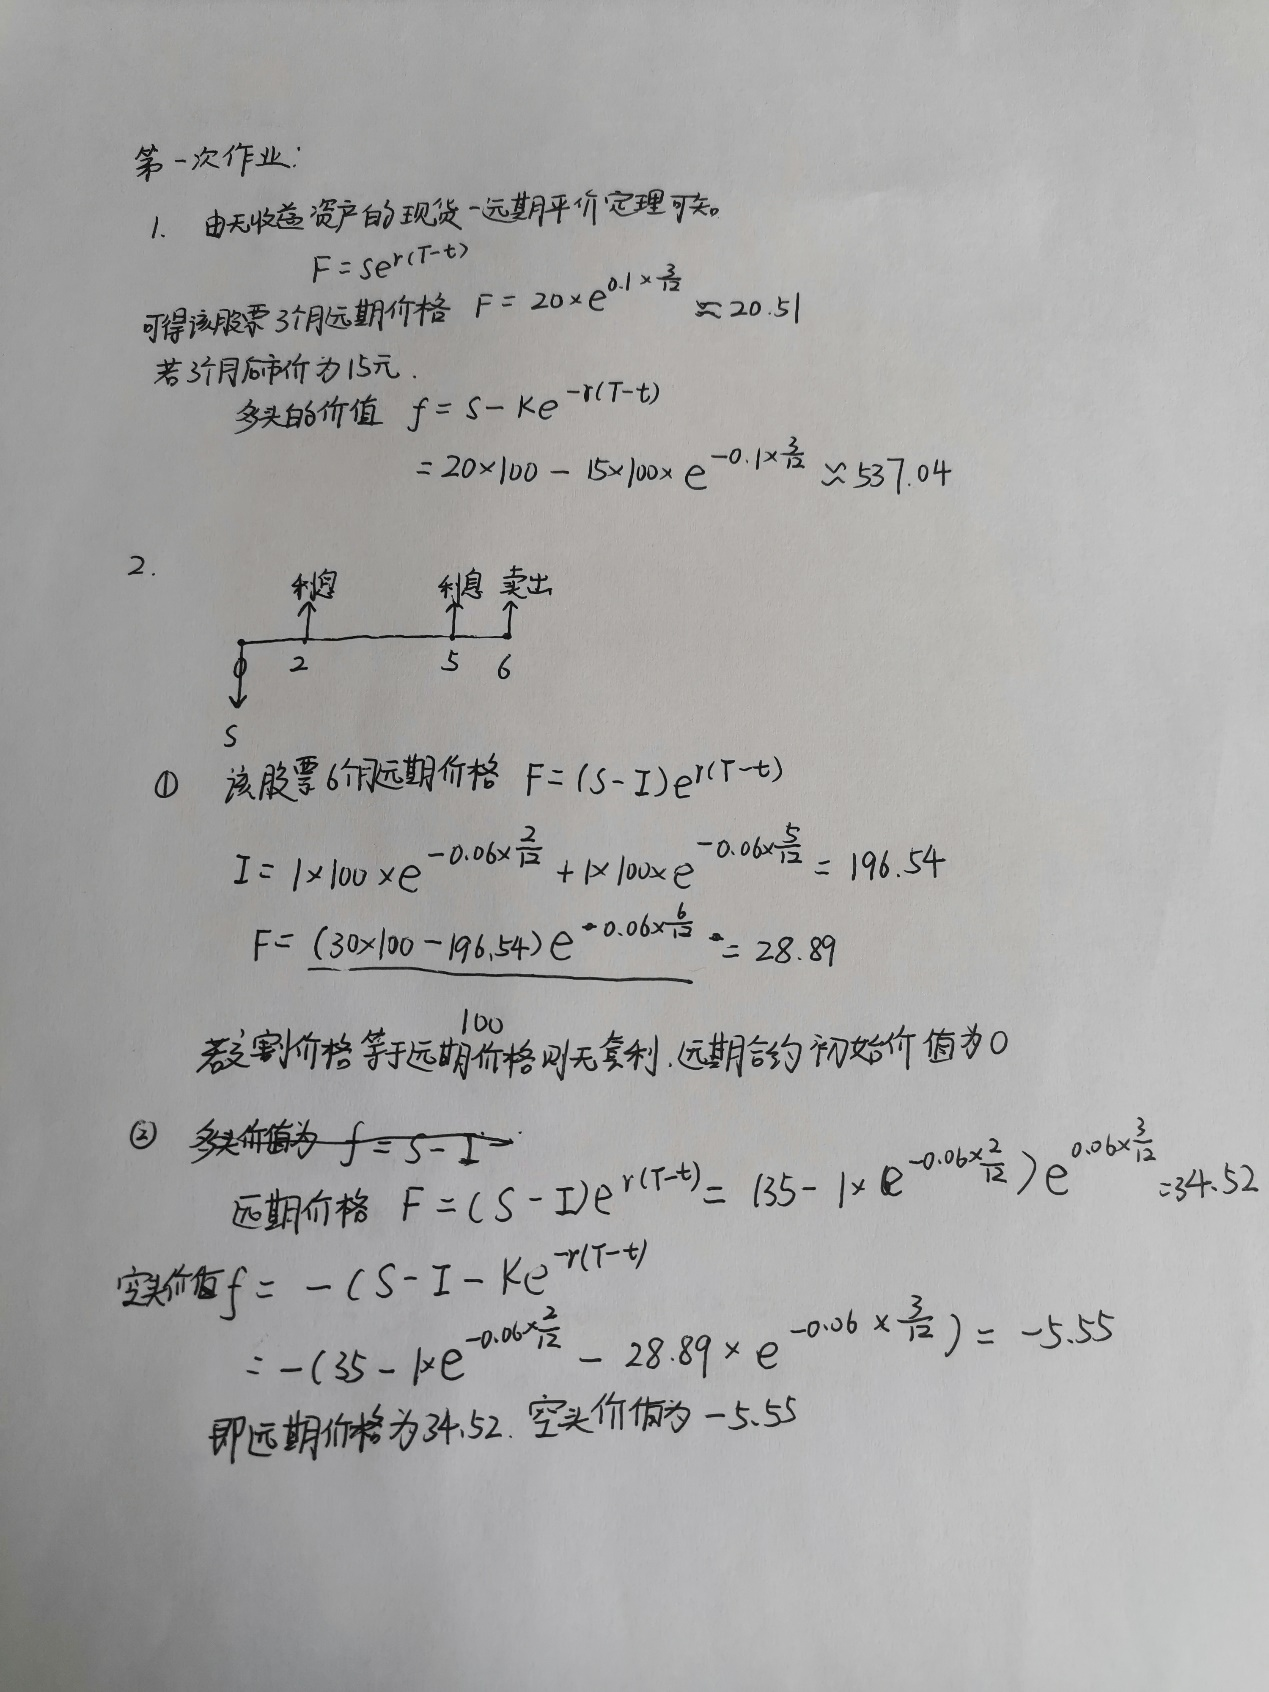 第一次作业:
1. 由无收益资产的现货-远期平价定理可知。
F=Se^{r(T-t)}
可得该股票3个月远期价格 F=20×e^{0.1×3/12}≈20.51
若3个月后市价为15元.
多头的价值 f=S-Ke^{-r(T-t)}
=20×100-15×100×e^{-0.1×3/12}≈537.04
2.
利息 利息 卖出
0 2 5 6
S
① 该股票6个月远期价格 F=(S-I)e^{r(T-t)}
I=1×100×e^{-0.06×2/12}+1×100×e^{-0.06×5/12}=196.54
F=(30×100-196.54)e^{0.06×6/12}=28.89
100
若交割价格等于远期价格则无套利.远期合约初始价值为0
② 多头价值为 f=S-I
远期价格 F=(S-I)e^{r(T-t)}=(35-1×e^{-0.06×2/12})e^{0.06×3/12}=34.52
空头价值f=-(S-I-Ke^{-r(T-t)}
=-(35-1×e^{-0.06×2/12}-28.89×e^{-0.06×3/12})=-5.55
即远期价格为34.52.空头价值为-5.55